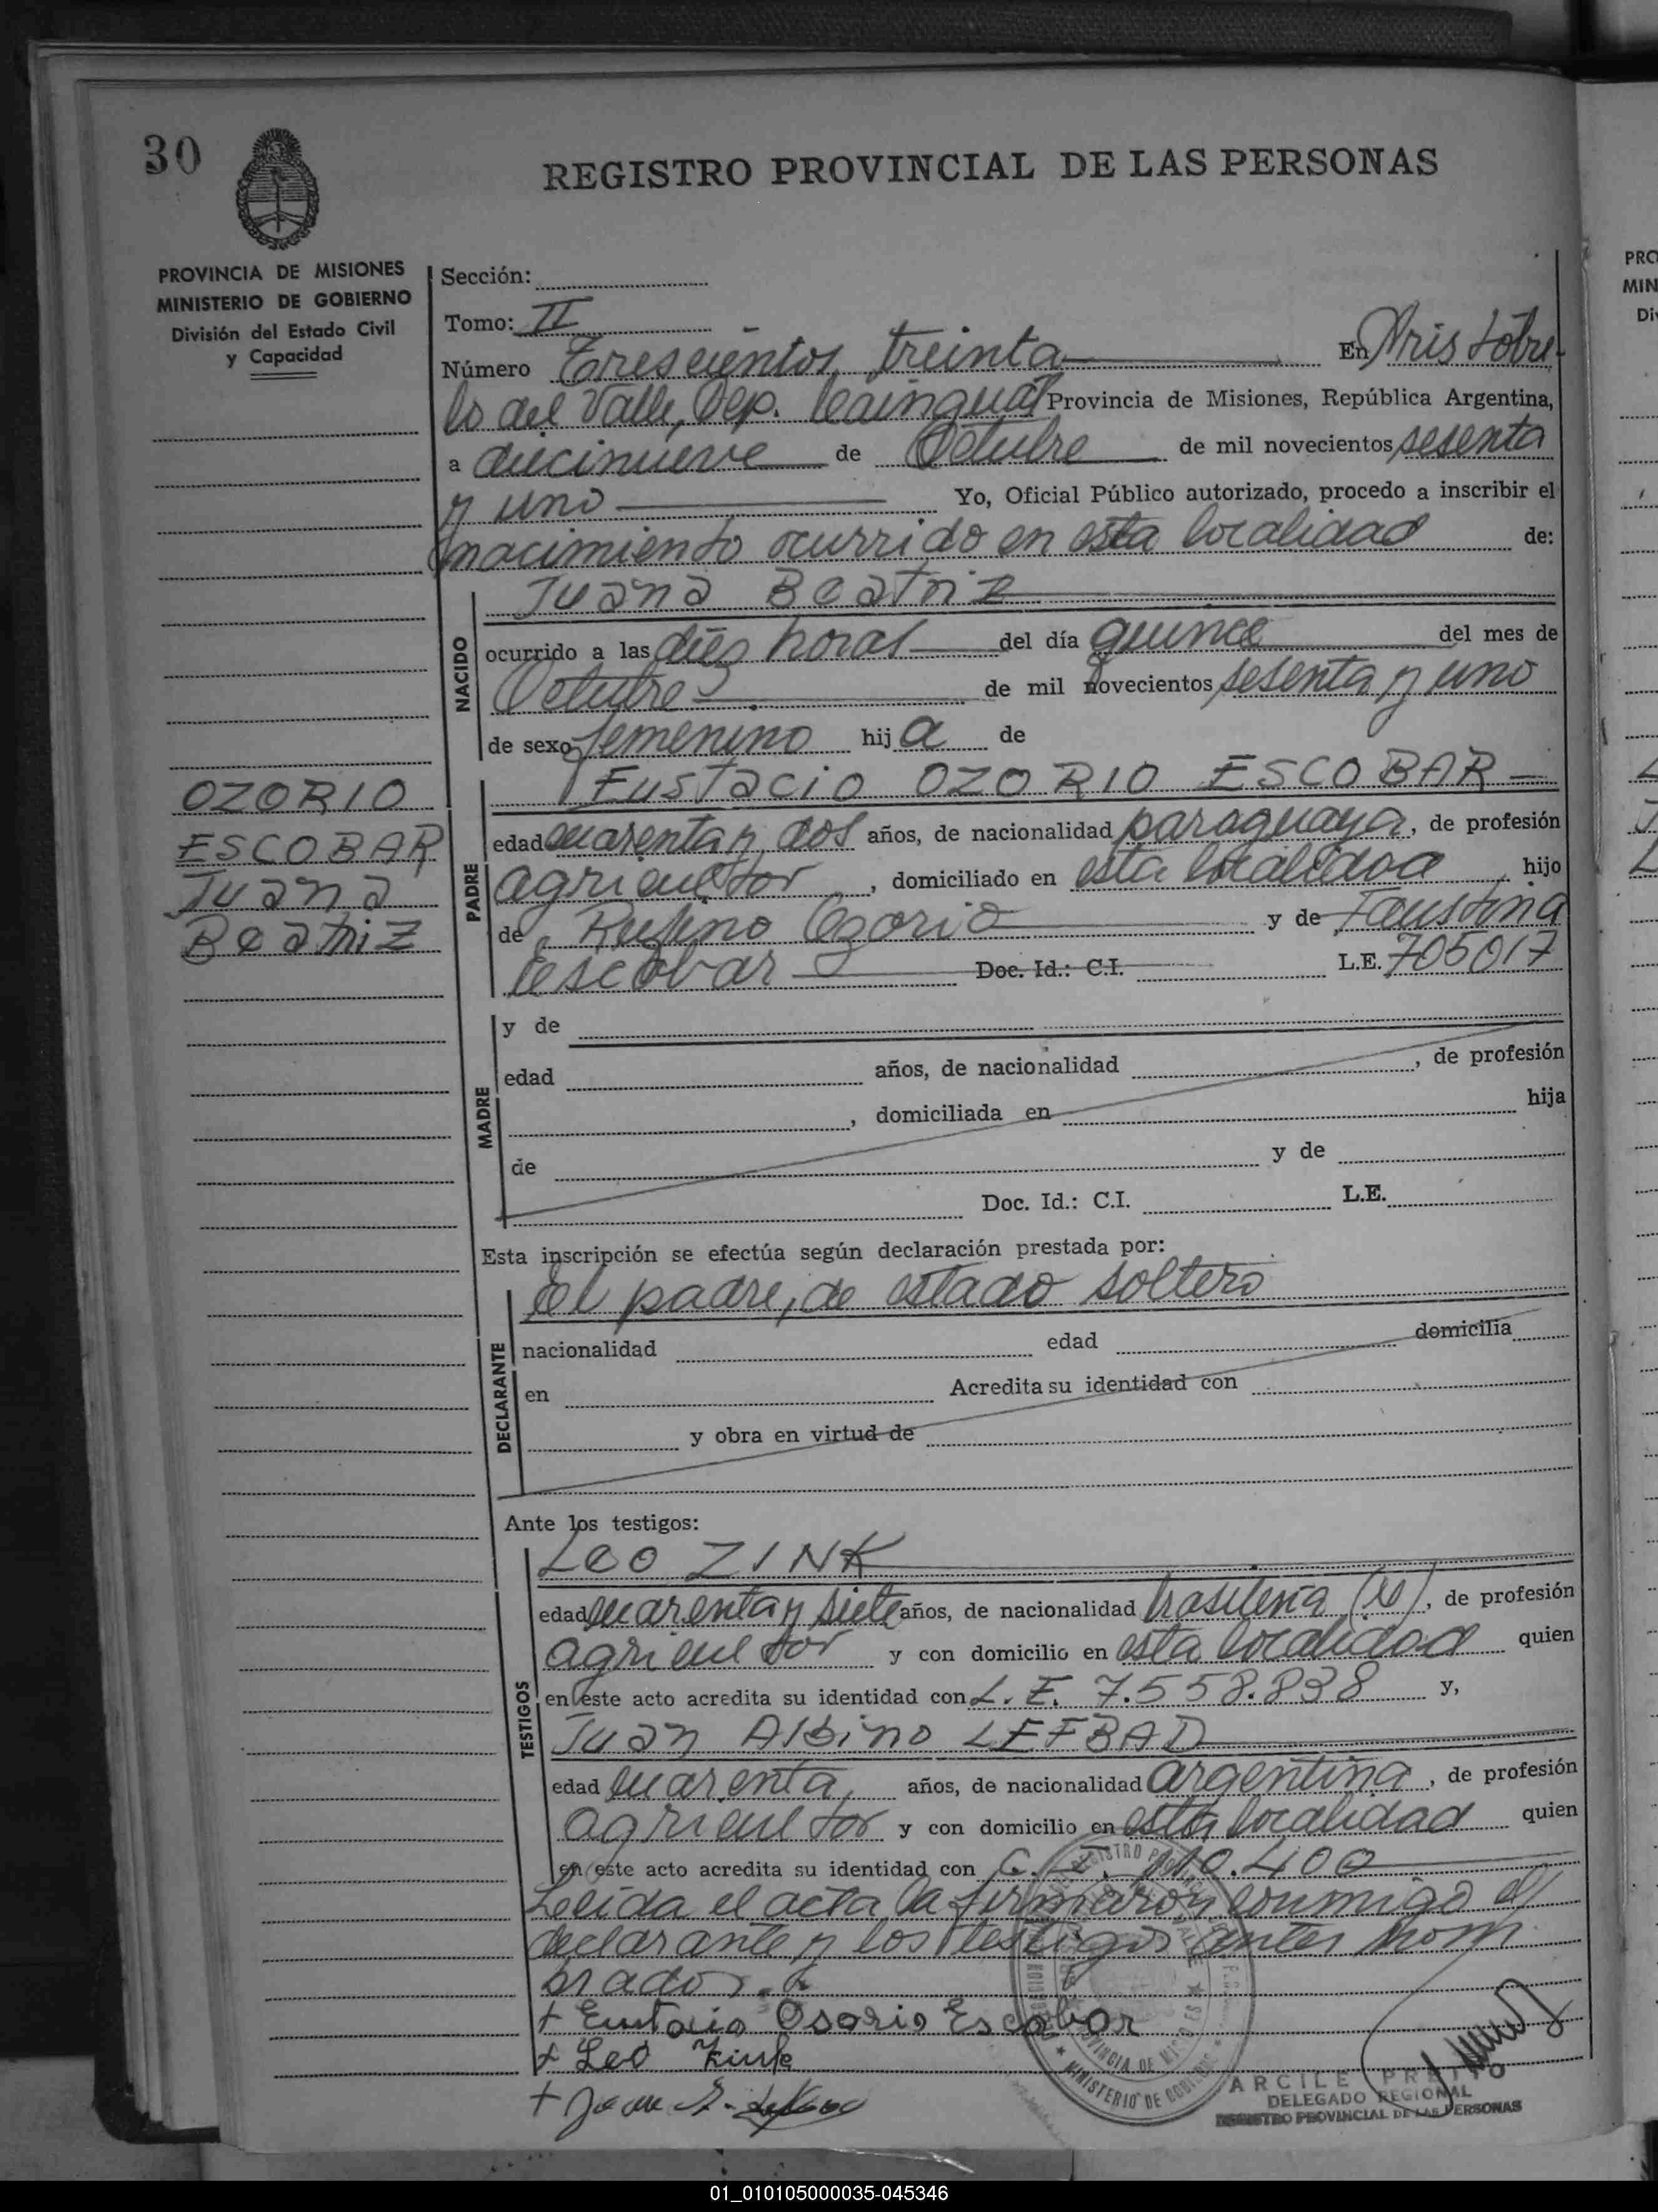 30
REGISTRO PROVINCIAL DE LAS PERSONAS
PROVINCIA DE MISIONES
MINISTERIO DE GOBIERNO
División del Estado Civil
y Capacidad
Sección:
Tomo: II
Número Trescientos treinta En Aristóbu-
lo del Valle, Dep. Cainguás Provincia de Misiones, República Argentina,
a diecinueve de Octubre de mil novecientos sesenta
y uno Yo, Oficial Público autorizado, procedo a inscribir el
nacimiento ocurrido en esta localidad de:
NACIDO
Juana Beatriz
ocurrido a las diez horas del día quince del mes de
Octubre de mil novecientos sesenta y uno
de sexo femenino hija de
OZORIO
ESCOBAR
Juana
Beatriz
PADRE
Eustacio OZORIO ESCOBAR
edad cuarenta y dos años, de nacionalidad paraguaya, de profesión
agricultor, domiciliado en esta localidad hijo
de Rufino Ozorio y de Faustina
Escobar Doc. Id.: C.I. L.E. 705017
MADRE
y de
edad años, de nacionalidad , de profesión
, domiciliada en hija
de y de
Doc. Id.: C.I. L.E.
Esta inscripción se efectúa según declaración prestada por:
DECLARANTE
El padre, de estado soltero
nacionalidad edad domicilia
en Acredita su identidad con
y obra en virtud de
Ante los testigos:
TESTIGOS
Leo ZINK
edad cuarenta y siete años, de nacionalidad brasileña, de profesión
agricultor y con domicilio en esta localidad quien
en este acto acredita su identidad con L. E. 7.558.838 y,
Juan Albino LEFBAD
edad cuarenta años, de nacionalidad argentina, de profesión
agricultor y con domicilio en esta localidad quien
en este acto acredita su identidad con C. I. 110.400
Leída el acta la firmaron conmigo el
declarante y los testigos antes nom
brados.
+ Eustacio Osorio Escobar
+ Leo Zink
MINISTERIO DE GOBIERNO
ARCILE PRETTO
DELEGADO REGIONAL
REGISTRO PROVINCIAL DE LAS PERSONAS
PRO
MIN
Di
01_010105000035-045346